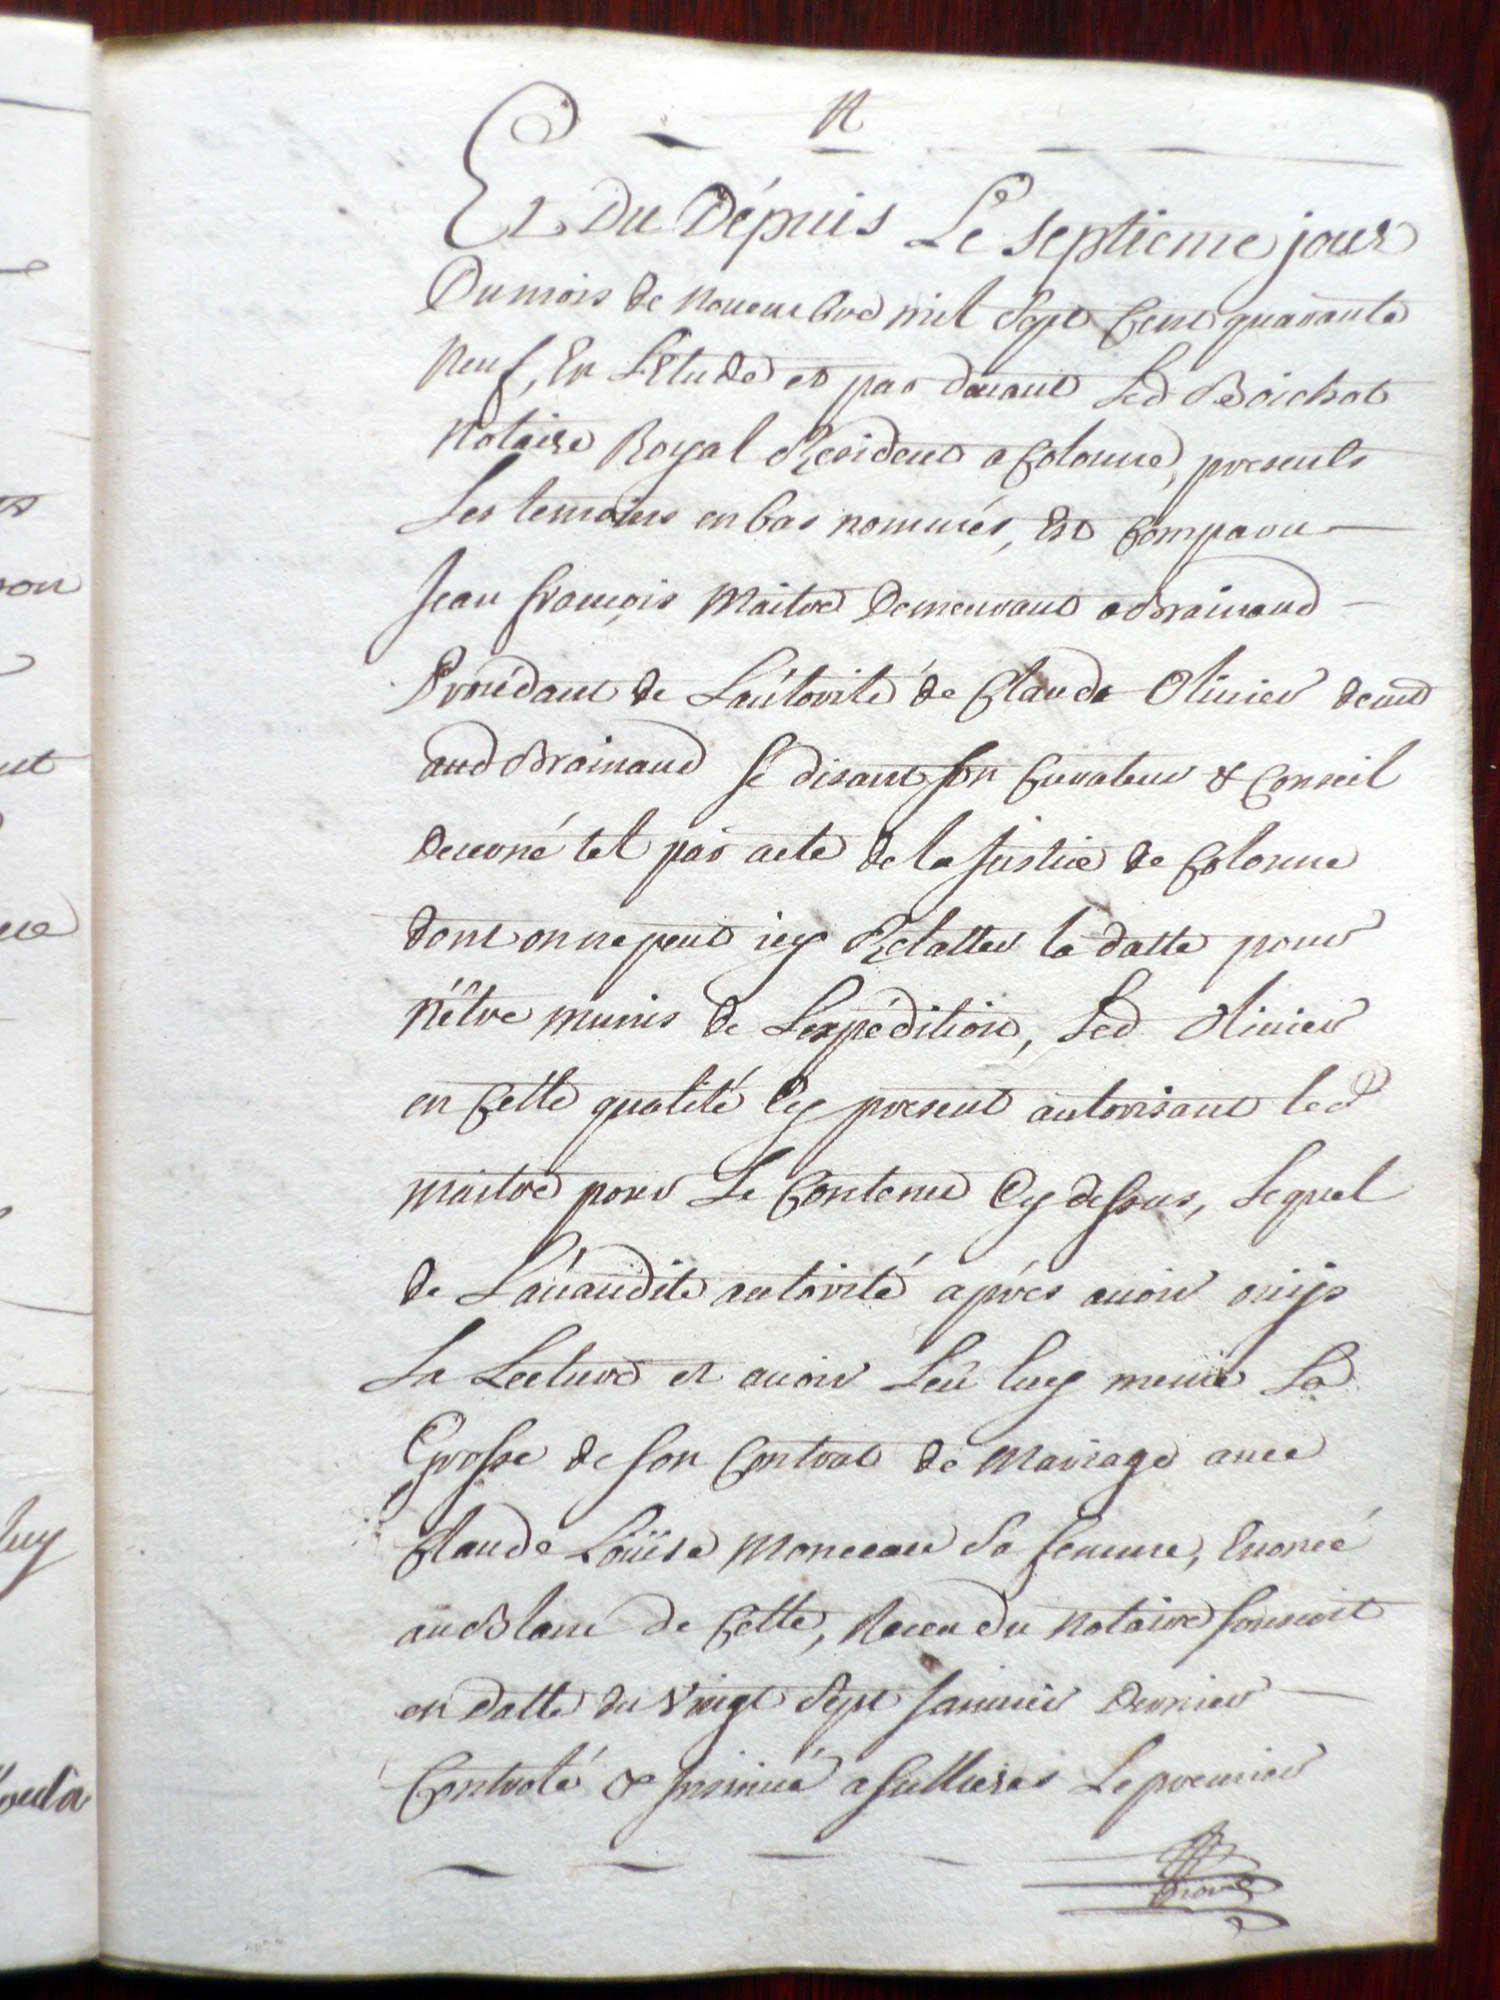 Et Du Dépuis Le septieme jour
Du mois de Nouembre mil Sept Cent quarante
Neuf, En L'Etude et par deuant Led Boichot
Notaire Royal Resident a Colonne, presents
Les temoins en bas nommés, Est Comparu
Jean françois Maitre Demeurant a Brainand
Procédant de L'aútorité de Claude Oliuier demt
aud Brainand se disant son Curateur & Conseil
Decerné tel par acte de la Justice de Colonne
dont on ne peut icy Relatter la datte pour
n'être munis de L'expédition, Led Oliuier
en Cette qualité Cy present autorisant led
Maitre pour Le Contenu Cy dessous, Lequel
de L'auandite autorité aprés auoir ouijs
La Lecture et auoir Leû luy meme La
Grosse de son Contrat de Mariage auec
Claude Loüise Monceau Sa femme, Enoncé
au Blanc de Cette, Receu du Notaire soussent
en datte du Vingt Sept Januier Dernier
Controlé & Insinué a Sellieres Le premier